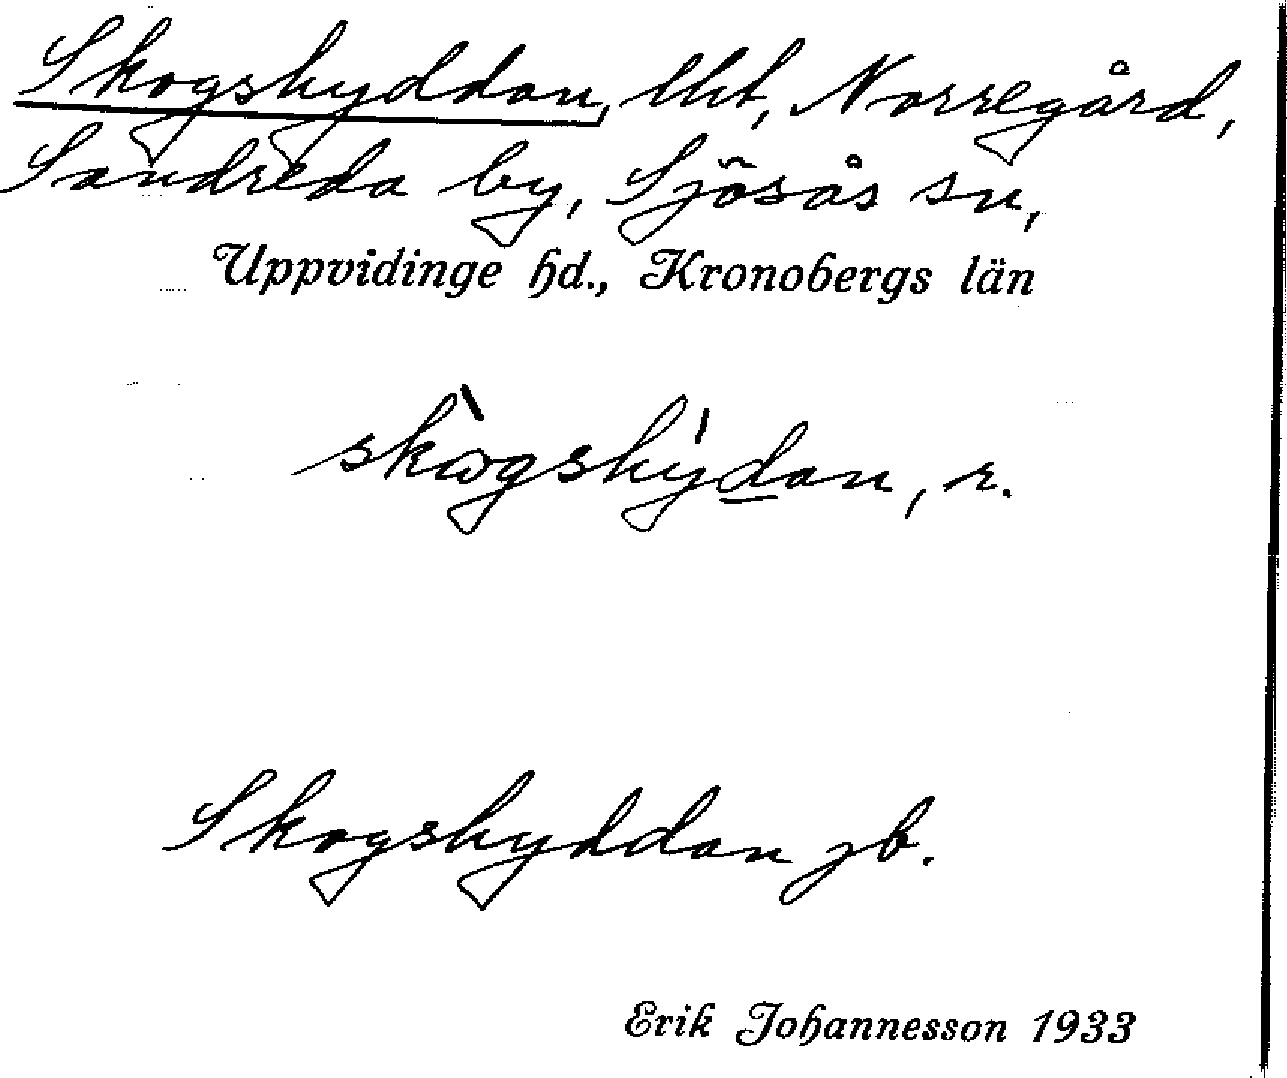 Skogshyddan, lht, Norregård,
Sandreda by, Sjösås sn,
Uppvidinge hd., Kronobergs län
skògshýdan, r.
Skogshyddan jb.
Erik Johannesson 1933